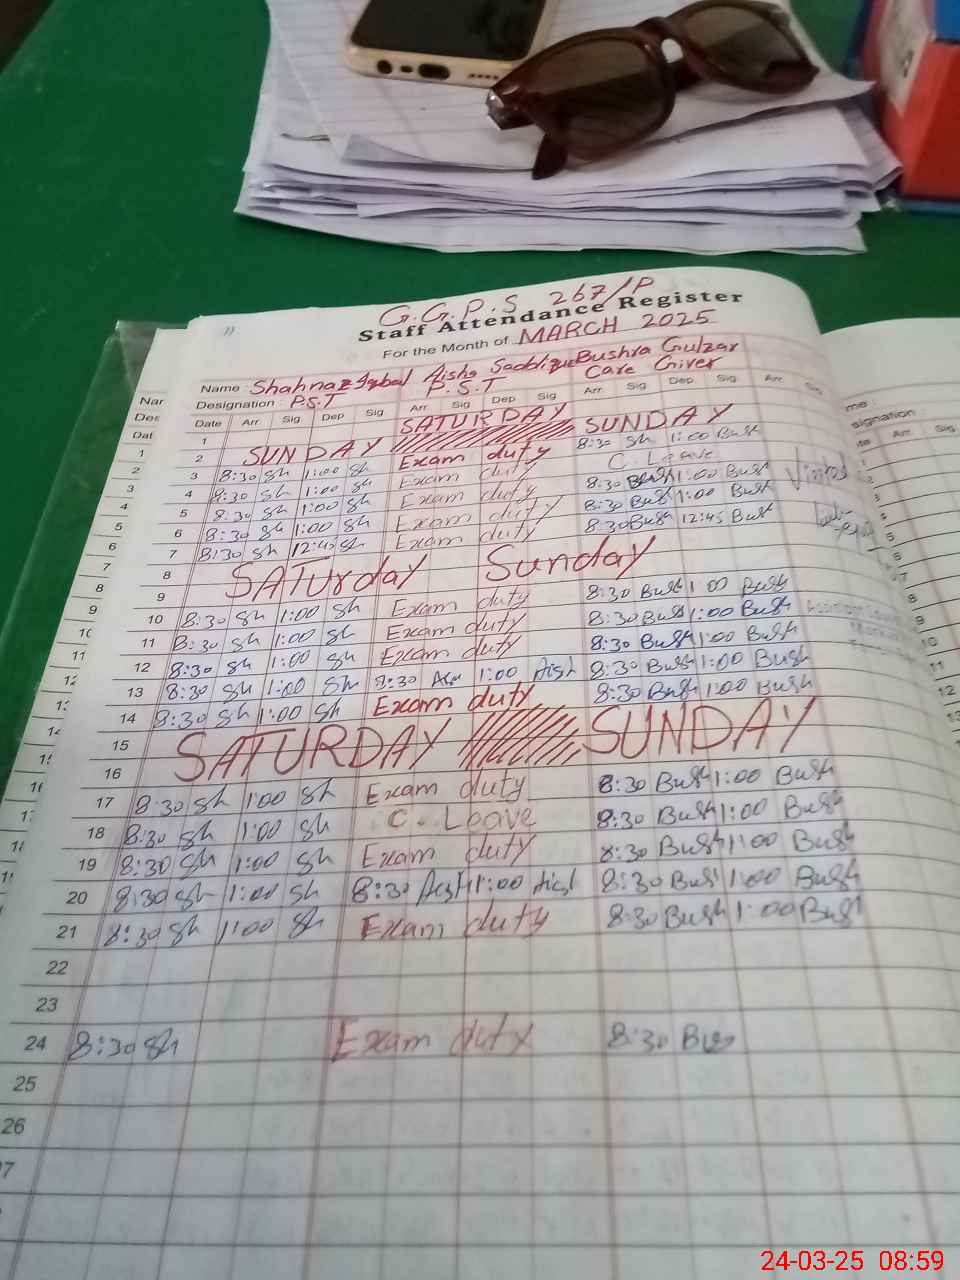 G.G.P.S 267/P
Staff Attendance Register
For the Month of MARCH 2025
Name : Shahnaz Iqbal Aisha Saddique Bushra Gulzar
Designation : P.S.T P.S.T Care Giver
Date Arr Sig Dep Sig Arr Sig Dep Sig Arr Sig Dep Sig Arr
1 SATURDAY SUNDAY
2 SUNDAY
3 8:30 Sh 1:00 Sh Exam duty 8:30 Sh 1:00 Bush
4 8:30 Sh 1:00 Sh Exam duty C. Leave
5 8:30 Sh 1:00 Sh Exam duty 8:30 Bush 1:00 Bush
6 8:30 Sh 1:00 Sh Exam duty 8:30 Bush 1:00 Bush
7 8:30 Sh 12:45 Sh Exam duty 8:30 Bush 12:45 Bush
8 SATurday Sunday
9
10 8:30 Sh 1:00 Sh Exam duty 8:30 Bush 1:00 Bush
11 8:30 Sh 1:00 Sh Exam duty 8:30 Bush 1:00 Bush
12 8:30 Sh 1:00 Sh Exam duty 8:30 Bush 1:00 Bush
13 8:30 Sh 1:00 Sh 8:30 1:00 Aish 8:30 Bush 1:00 Bush
14 8:30 Sh 1:00 Sh Exam duty 8:30 Bush 1:00 Bush
15 SATURDAY SUNDAY
16
17 8:30 Sh 1:00 Sh Exam duty 8:30 Bush 1:00 Bush
18 8:30 Sh 1:00 Sh C. Leave 8:30 Bush 1:00 Bush
19 8:30 Sh 1:00 Sh Exam duty 8:30 Bush 1:00 Bush
20 8:30 Sh 1:00 Sh 8:30 Aish 1:00 Aish 8:30 Bush 1:00 Bush
21 8:30 Sh 1:00 Sh Exam duty 8:30 Bush 1:00 Bush
22
23
24 8:30 Sh Exam duty 8:30 Bus
25
26
24-03-25 08:59